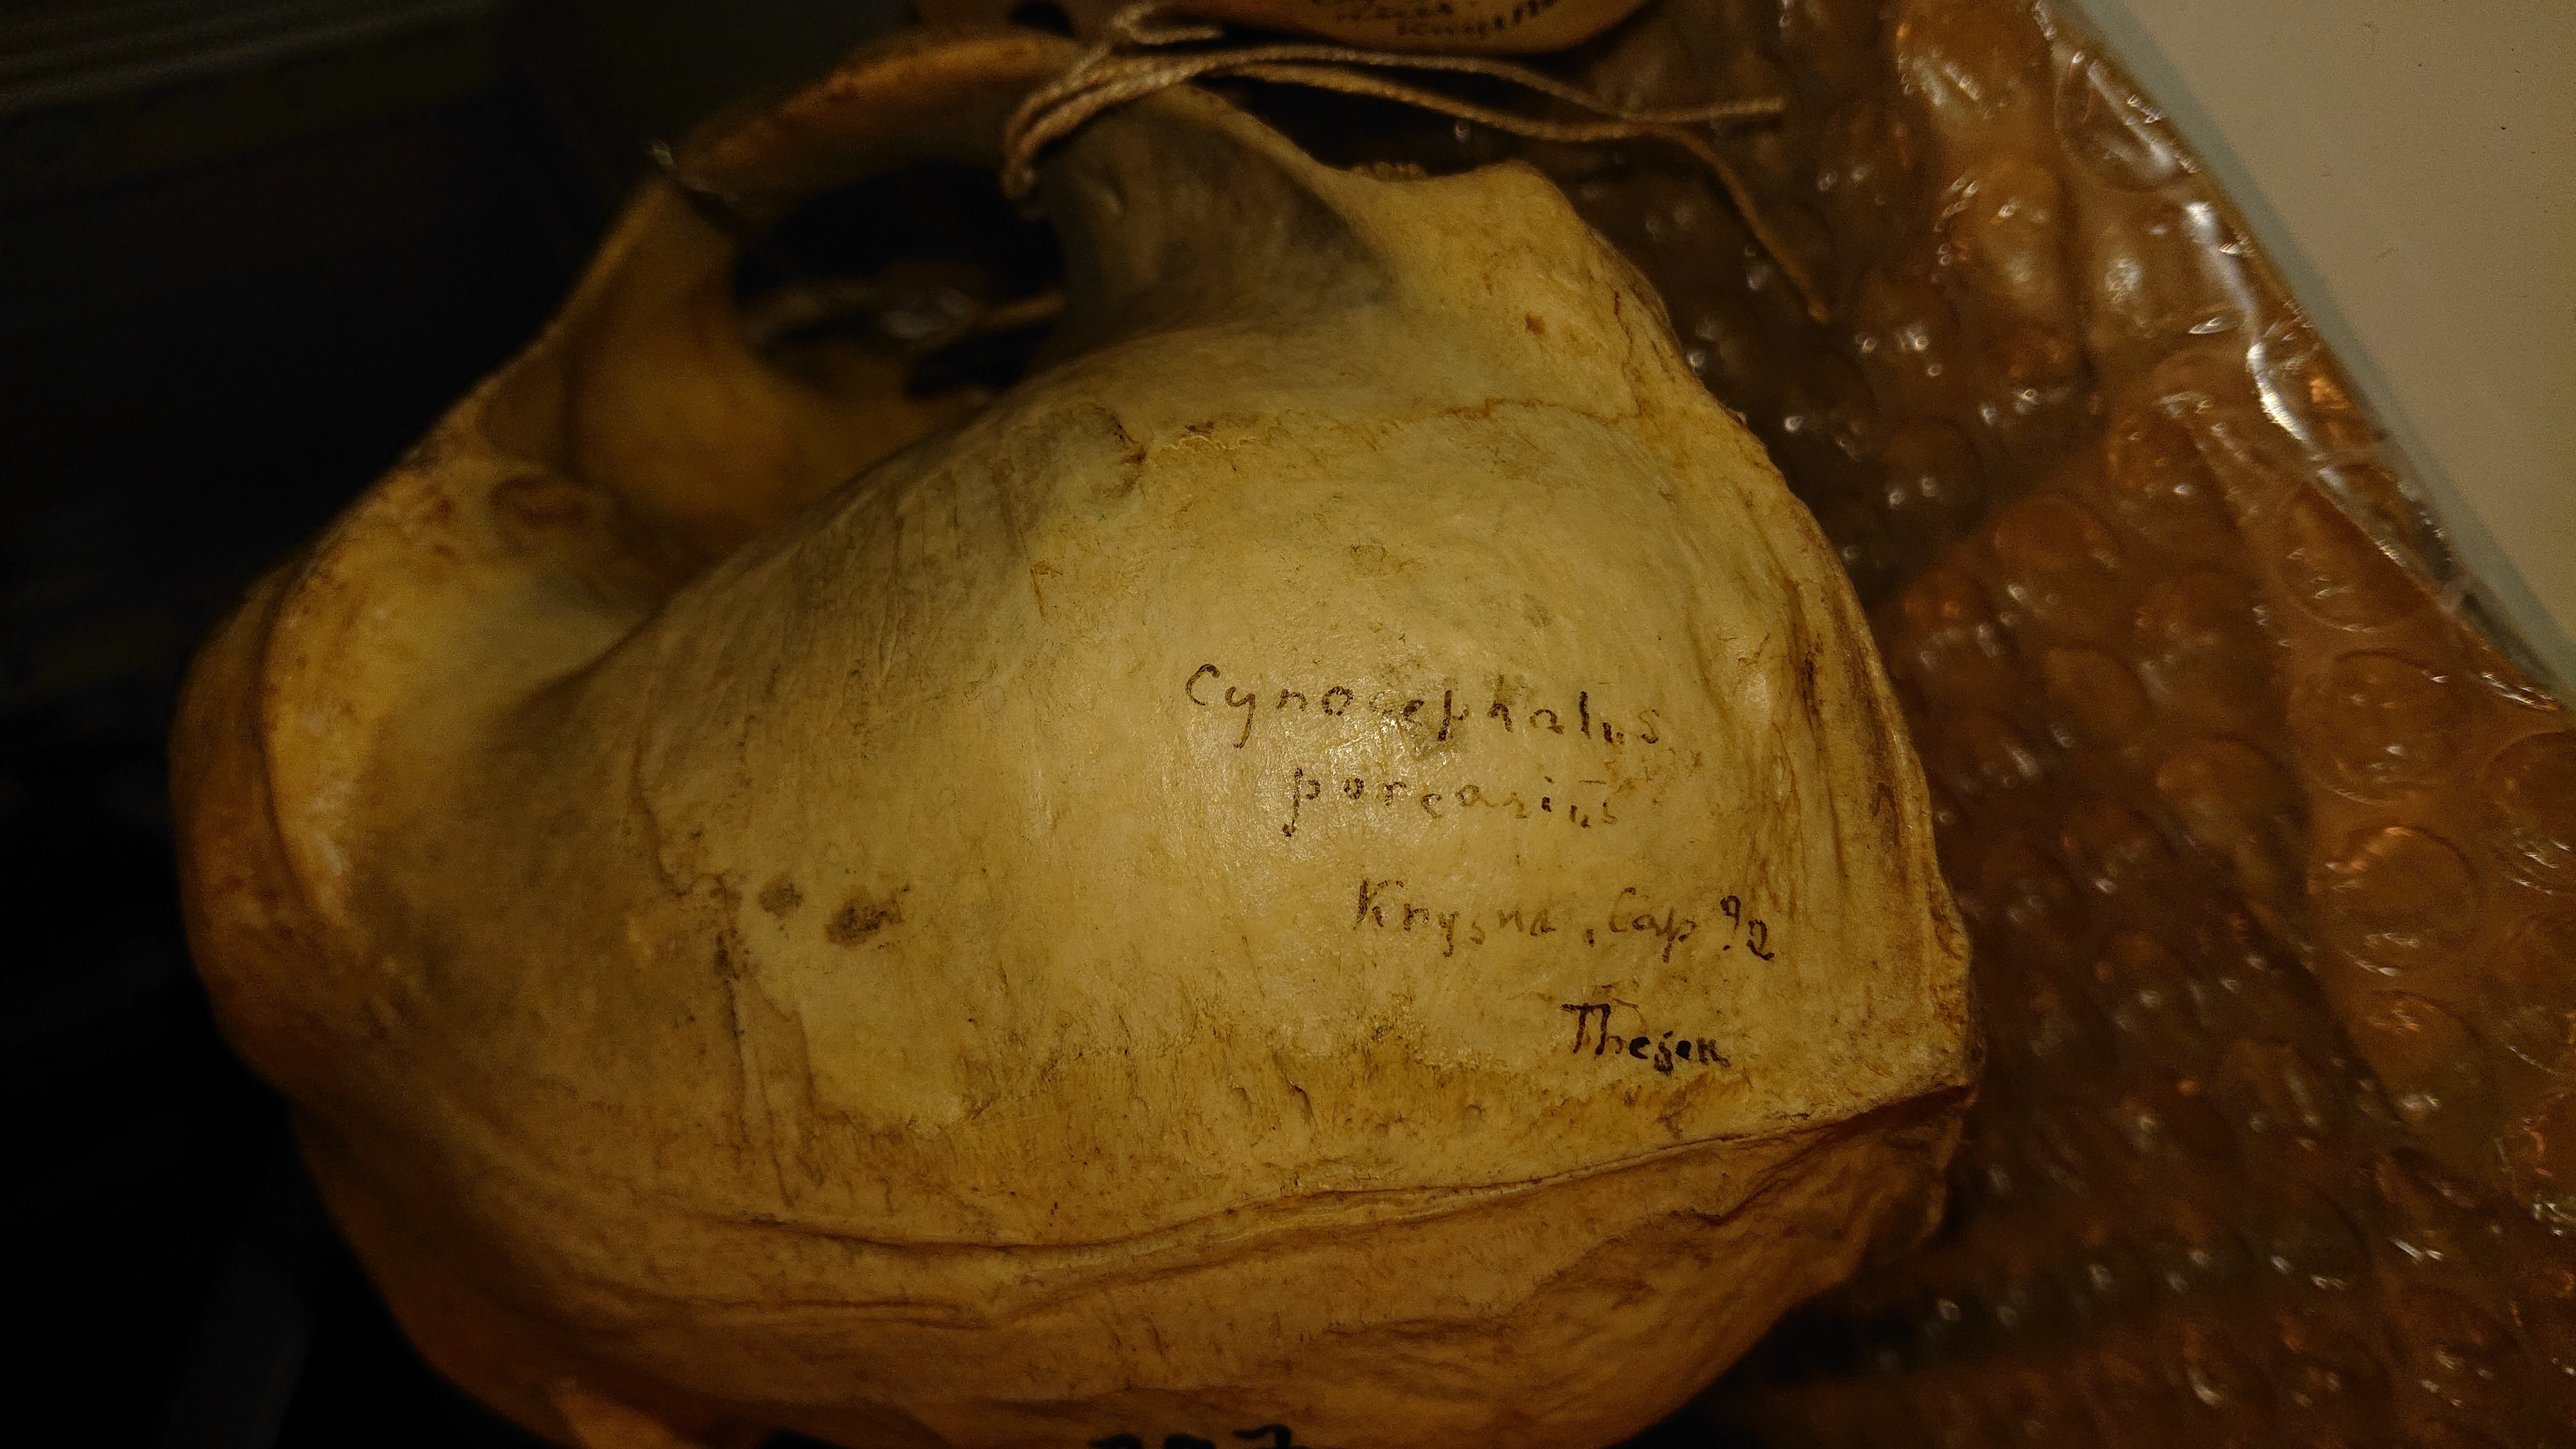 Cynocephalus
porcarius
Knysna, Cap 92
Thesen